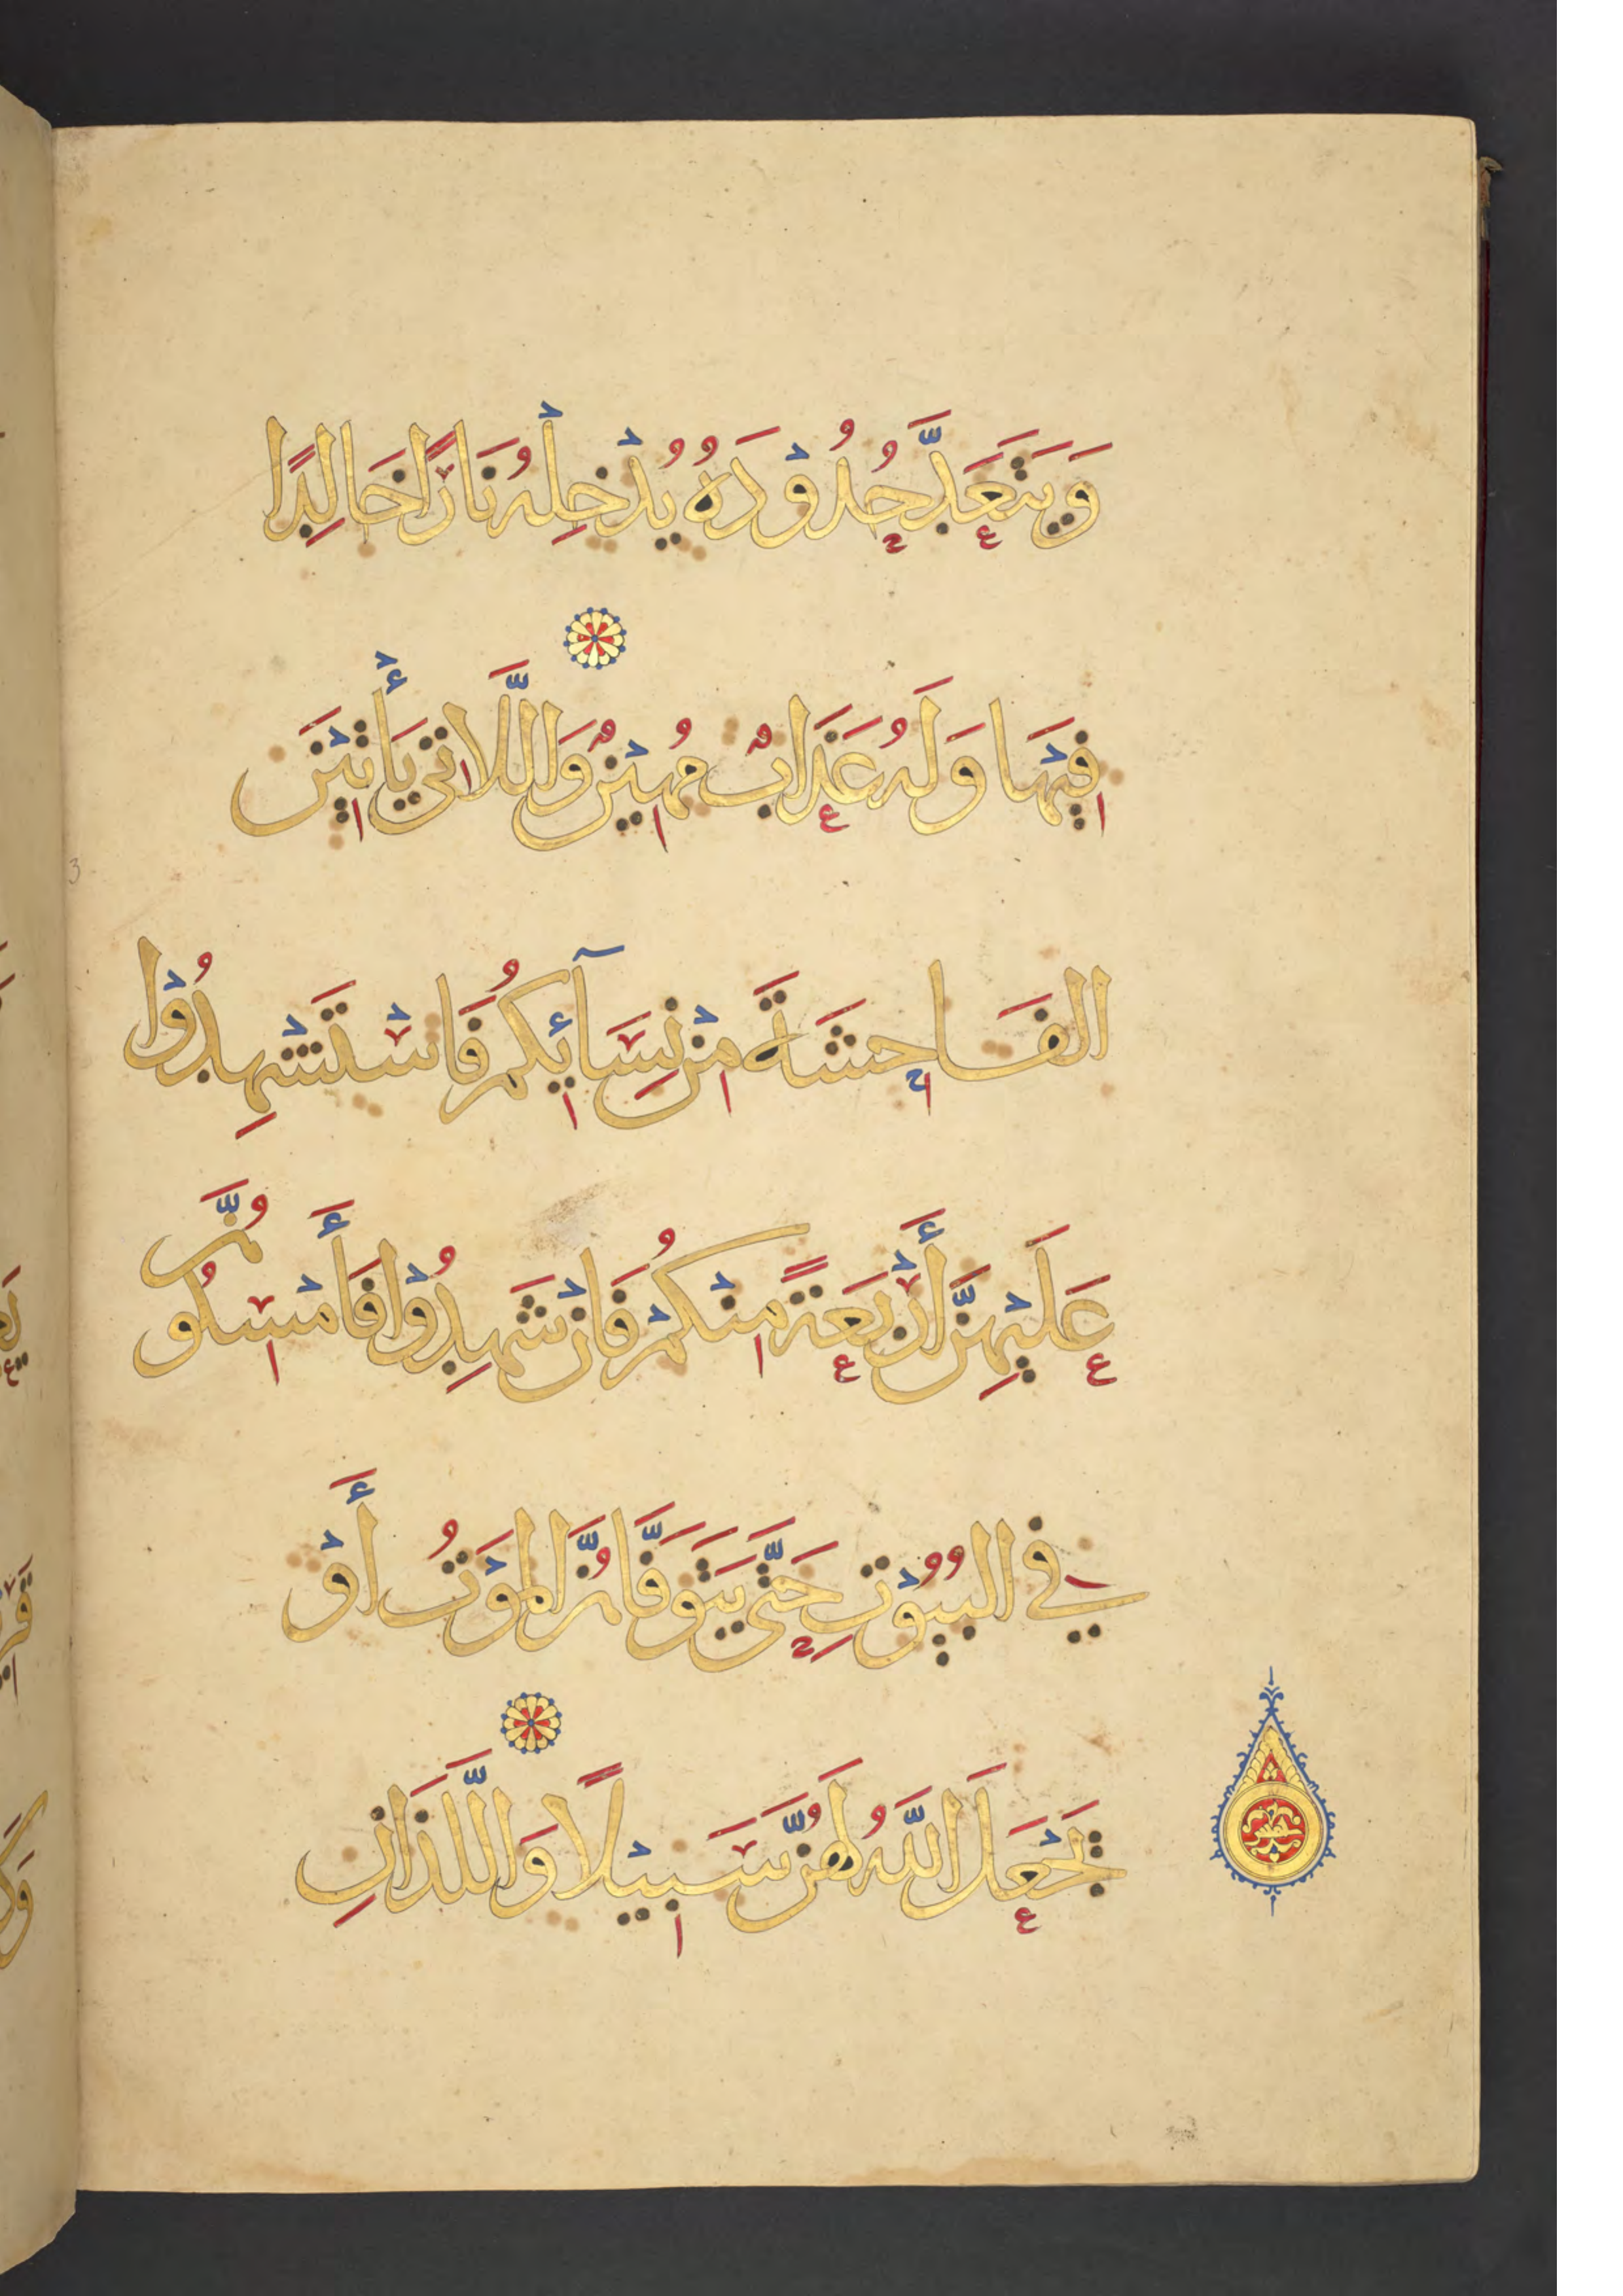 وَيَتَعَدَّ حُدُوْدَهُ يُدْخِلْهُ نَارًا خَالِدًا
فِيْهَا وَلَهُ عَذَابٌ مُهِيْنٌ وَاللَّاتِي يَأْتِيْنَ
الفَاحِشَةَ مِنْ نِسَآئِكُمْ فَاسْتَشْهِدُوْا
عَلَيْهِنَّ أَرْبَعَةً مِنْكُمْ فَاِنْ شَهِدُوْا فَأَمْسِكُوهُنَّ
فِي البُيُوْتِ حَتَّى يَتَوَفَّاهُنَّ المَوْتُ أَوْ
يَجْعَلَ اللَّهُ لَهُنَّ سَبِيْلًا وَاللَّذَانِ
3